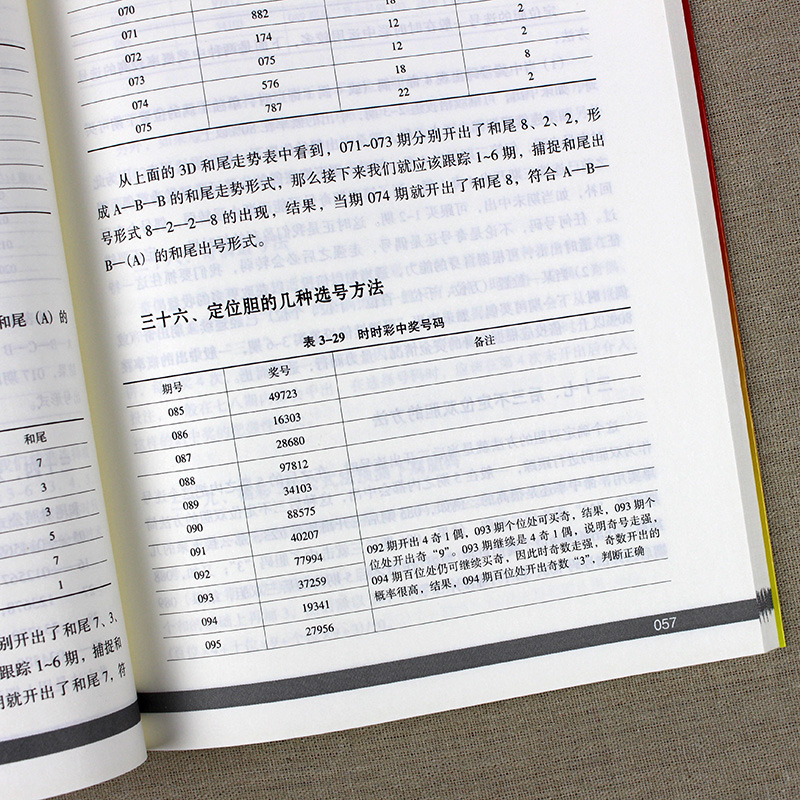 和尾（A）的
和尾
7
3
3
5
7
1
别开出了和尾 7、3、
跟踪 1~6 期，捕捉和
就开出了和尾 7，符
070
071 882 18
072 174 12 2
073 075 12 2
074 576 18 8
075 787 22 2
从上面的 3D 和尾走势表中看到，071~073 期分别开出了和尾 8、2、2，形
成 A—B—B 的和尾走势形式，那么接下来我们就应该跟踪 1~6 期，捕捉和尾出
号形式 8—2—2—8 的出现，结果，当期 074 期就开出了和尾 8，符合 A—B—
B—(A) 的和尾出号形式。
三十六、定位胆的几种选号方法
表 3-29 时时彩中奖号码
期号 奖号 备注
085 49723
086 16303
087 28680
088 97812
089 34103
090 88575
091 40207
092 77994
093 37259
094 19341
095 27956
092 期开出 4 奇 1 偶，093 期个位处可买奇，结果，093 期个
位处开出奇“9”。093 期继续是 4 奇 1 偶，说明奇号走强，
094 期百位处仍可继续买奇，因此时奇数走强，奇数开出的
概率很高，结果，094 期百位处开出奇数“3”，判断正确
057